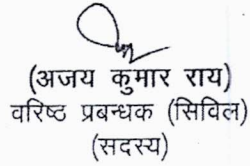 (अजय कुमार राय)
वरिष्ठ प्रबन्धक (सिविल)
(सदस्य)